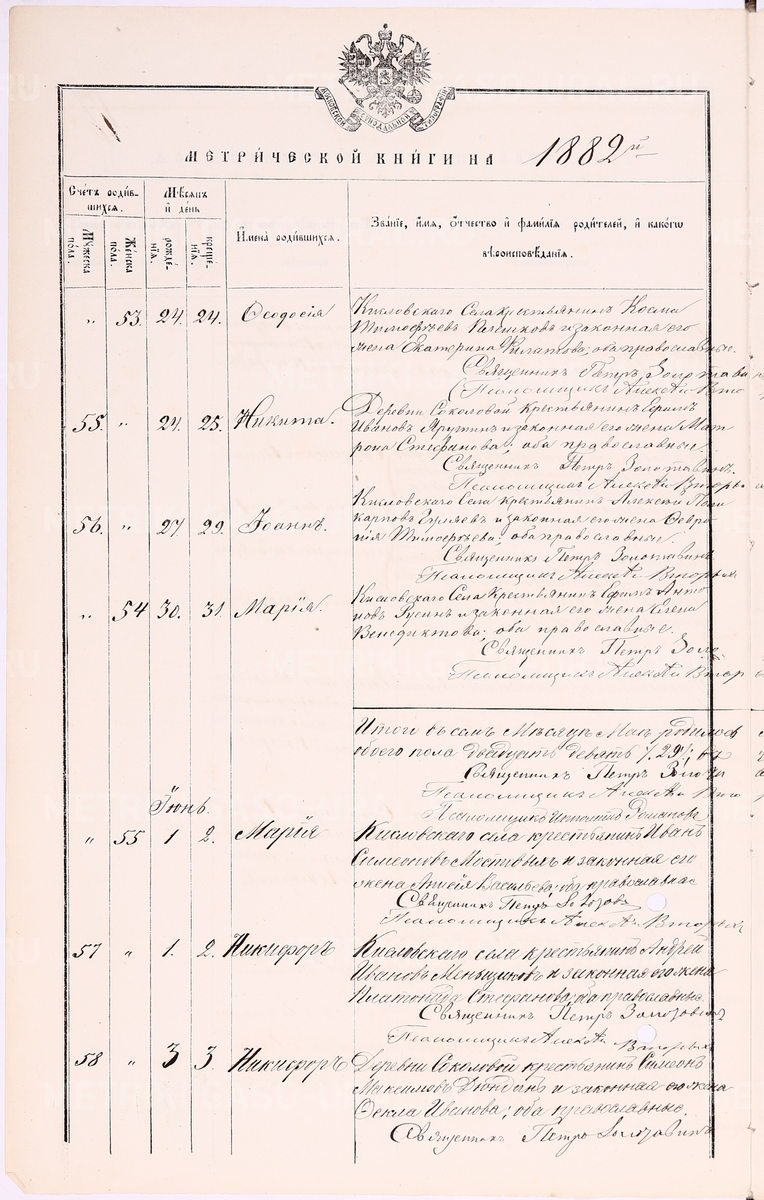 МЕТРИ́ЧЕСКОЙ КНИ́ГИ НА 1882й
Счетъ родив-
шихся.
Мѣсяцъ
и день
Мужеска
пола.
Женска
пола.
рожде-
нія.
креще-
нія.
Имена родившихся.
Званіе, имя, отчество и фамилія родителей, и какого
вѣроисповѣданія.
" 53. 24. 24. Ѳеодосія
Кисловскаго Села крестьянинъ Косма
Тимофѣевъ и законная его
жена Екатерина Филатова; оба православные.
Священникъ Петръ Золотави
Псаломщикъ Алексѣй Вто
55. " 24. 25. Никита.
Деревни Соколовой Крестьянинъ
Ивановъ и законная его жена Мат
рона Стефанова; оба православные.
Священникъ Петръ Золотавинъ.
Псаломщикъ Алексѣй Вторы
56. " 27 29. Іоаннъ.
Кисловскаго Села крестьянинъ Алексѣй Поли
карповъ и законная его жена Февро
нія Тимофѣева; оба православные
Священникъ Петръ Золотавинъ
Псаломщикъ Алексѣй Вторыхъ
" 54 30. 31. Марія.
Кисловскаго Села Крестьянинъ Анто
новъ Русинъ и законная его жена Елена
Венедиктова; оба православные.
Священникъ Петръ Золо
Псаломщикъ Алексѣй Втор
Итого въ семъ Мѣсяцѣ Маѣ родилось
обоего пола двадцать девять /.29/.
Священникъ Петръ Золота
Псаломщикъ Алексѣй Вто
Псаломщикъ Ипполитъ Романовъ
Іюнь.
" 55 1 2. Марія
Кисловскаго села крестьянинъ Иванъ
Симеоновъ Мостовыхъ и законная его
жена Васильева; оба православные
Священникъ Петръ
Псаломщикъ Алексѣй Вторыхъ
57 " 1. 2. Никифоръ
Кисловскаго села крестьянинъ Андрей
Ивановъ Меньщиковъ и законная его жена
Платонида Стефанова; оба православные.
Священникъ Петръ
Псаломщикъ Алексѣй
Вторыхъ
58 " 3 3. Никифоръ
Деревни Соколовой крестьянинъ Симеонъ
Максимовъ Дюндинъ и законная его жена
Ѳекла Иванова; оба православные.
Священникъ Петръ Золотавинъ